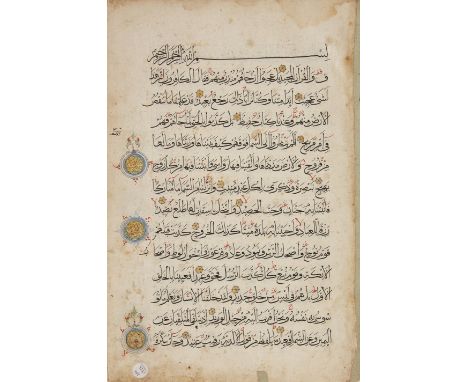 بسم الله الرحمن الرحيم
ق والقرآن المجيد بل عجبوا أن جاءهم منذر منهم فقال الكافرون هذا
شيء عجيب أئذا متنا وكنا ترابا ذلك رجع بعيد قد علمنا ما تنقص
الأرض منهم وعندنا كتاب حفيظ بل كذبوا بالحق لما جاءهم فهم
في أمر مريج أفلم ينظروا إلى السماء فوقهم كيف بنيناها وزيناها وما لها
من فروج والأرض مددناها وألقينا فيها رواسي وأنبتنا فيها من كل زوج
بهيج تبصرة وذكرى لكل عبد منيب ونزلنا من السماء ماء مباركا
فأنبتنا به جنات وحب الحصيد والنخل باسقات لها طلع نضيد
رزقا للعباد وأحيينا به بلدة ميتا كذلك الخروج كذبت قبلهم
قوم نوح وأصحاب الرس وثمود وعاد وفرعون وإخوان لوط وأصحاب
الأيكة وقوم تبع كل كذب الرسل فحق وعيد أفعيينا بالخلق
الأول بل هم في لبس من خلق جديد ولقد خلقنا الإنسان ونعلم ما تو
سوس به نفسه ونحن أقرب إليه من حبل الوريد إذ يتلقى المتلقيان عن
اليمين وعن الشمال قعيد ما يلفظ من قول إلا لديه رقيب عتيد وجاءت